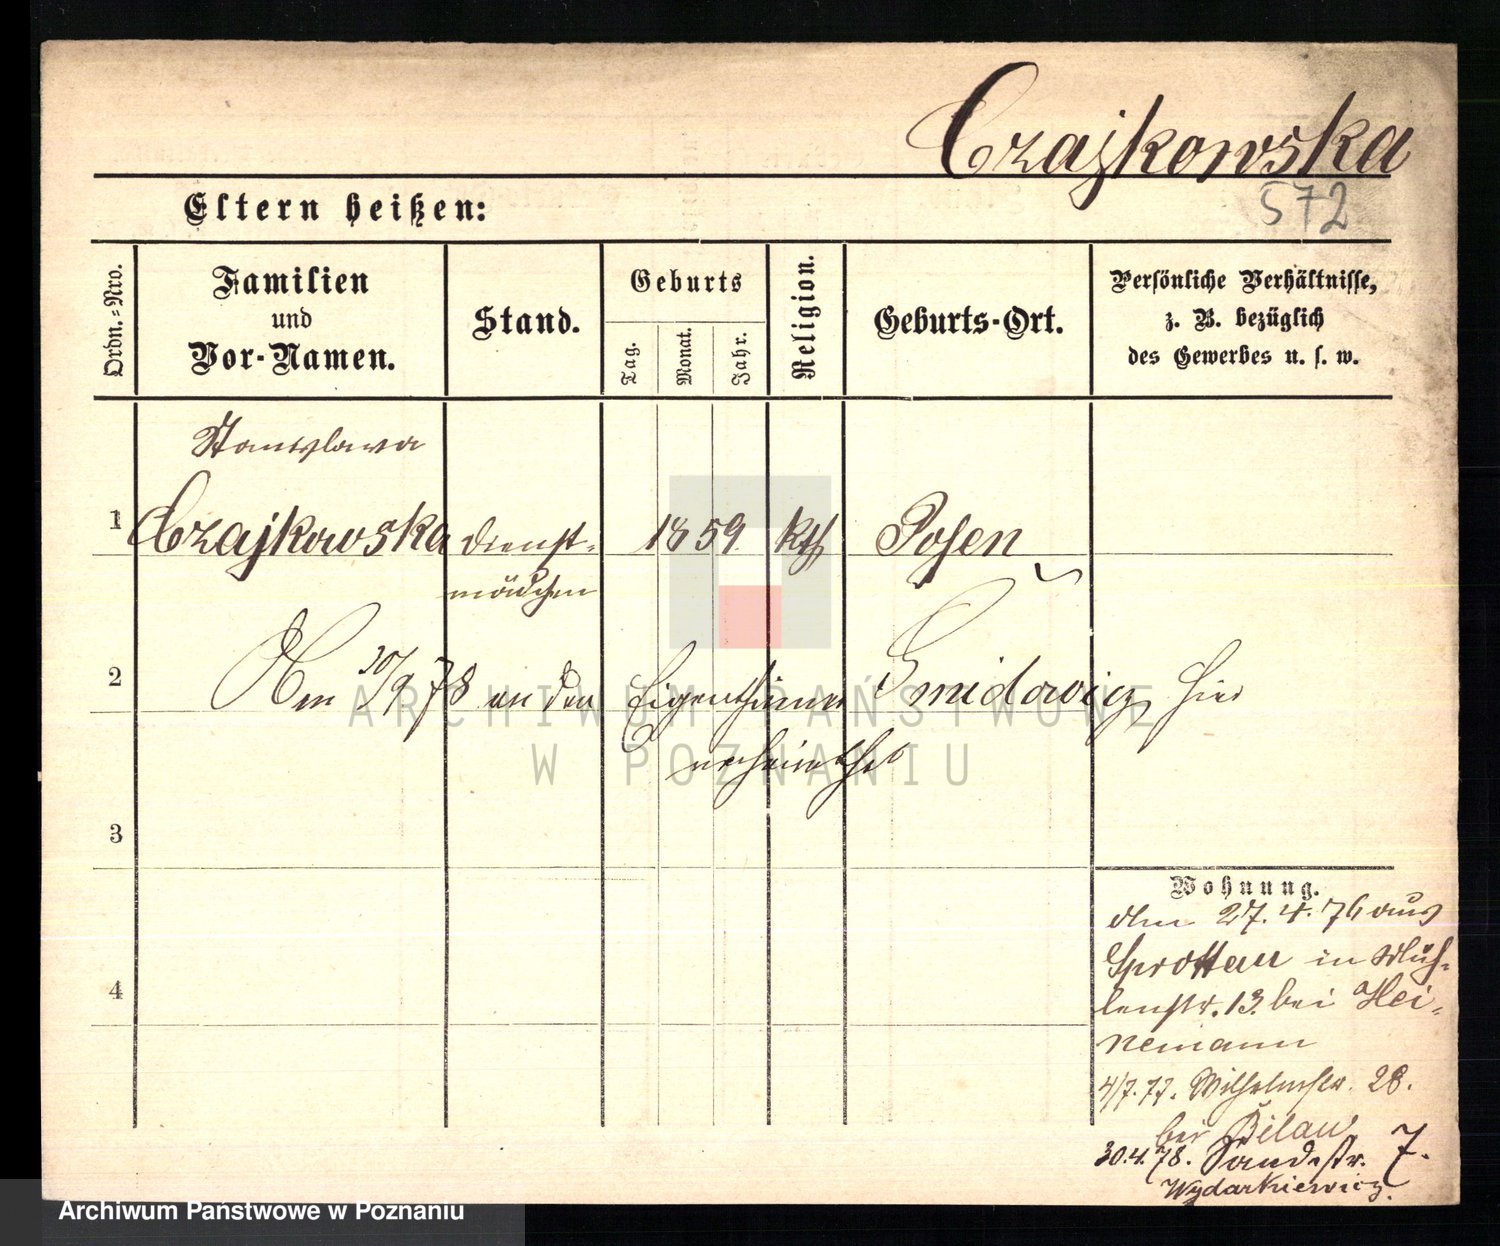 Czajkowska
572
Eltern heißen:
Ordn.-Nro.
Familien
und
Vor-Namen.
Stand.
Geburts
Tag.
Monat.
Jahr.
Religion.
Geburts-Ort.
Persönliche Verhältnisse,
z. B. bezüglich
des Gewerbes u. s. w.
Stanislawa
1 Czajkowska Dienst- 1859 kth Posen
mädchen
2 Am 30/9 78 an den Eigenthümer Smidowicz hier
verheirathet
3
4
Wohnung.
den 27.4.76 aus
Sprottau in Müh-
lenstr. 13. bei Hei-
nemann
4/7.77. Wilhelmstr. 28.
bei Bilau
30.4.78. Sandstr. 7.
Wydarkiewicz.
ARCHIWUM PAŃSTWOWE
W POZNANIU
Archiwum Państwowe w Poznaniu